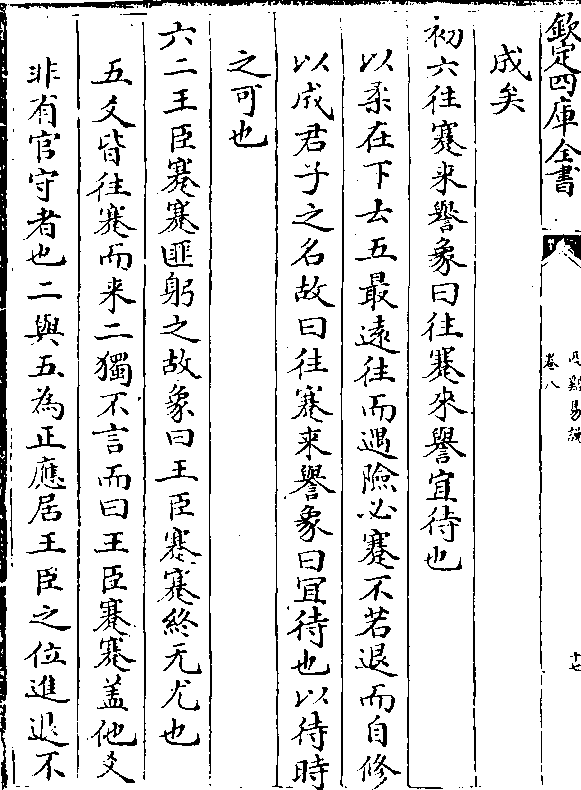 欽定四庫全書
卷八
易說
十七
成矣
初六往蹇来譽象曰往蹇來譽宜待也
以柔在下去五最遠往而遇險必蹇不若退而自修
以成君子之名故曰往蹇来譽象曰宜待也以待時
之可也
六二王臣蹇蹇匪躬之故象曰王臣蹇蹇終无尤也
五爻皆往蹇而来二獨不言而曰王臣蹇蹇盖他爻
非有官守者也二與五為正應居王臣之位進退不